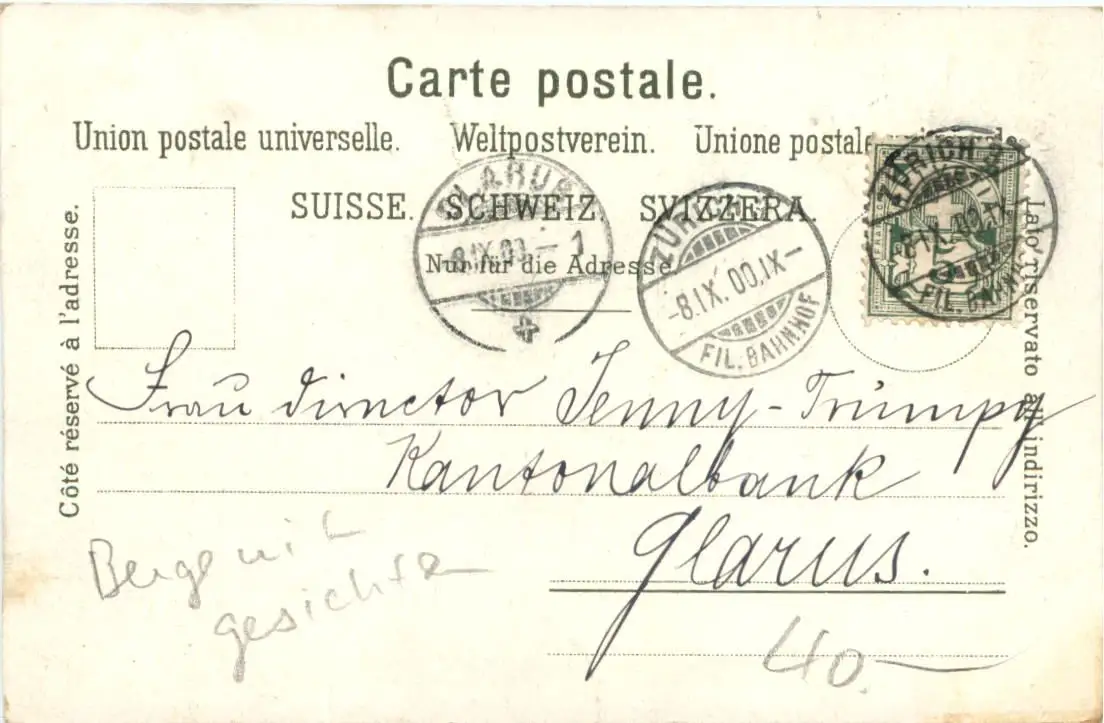 Carte postale.
Union postale universelle. Weltpostverein. Unione postale
SUISSE. SCHWEIZ. SVIZZERA.
Nur für die Adresse
Côté réservé à l'adresse.
Lato riservato all'indirizzo.
GLARUS
8.IX.00.–1
ZÜRICH
-8.IX.00.IX–
FIL. BAHNHOF
ZÜRICH
8.IX.00.
FIL. BAHNHOF
Frau Director Jenny-Trümpy
Kantonalbank
Glarus.
Berge mit
gesichter
40.–